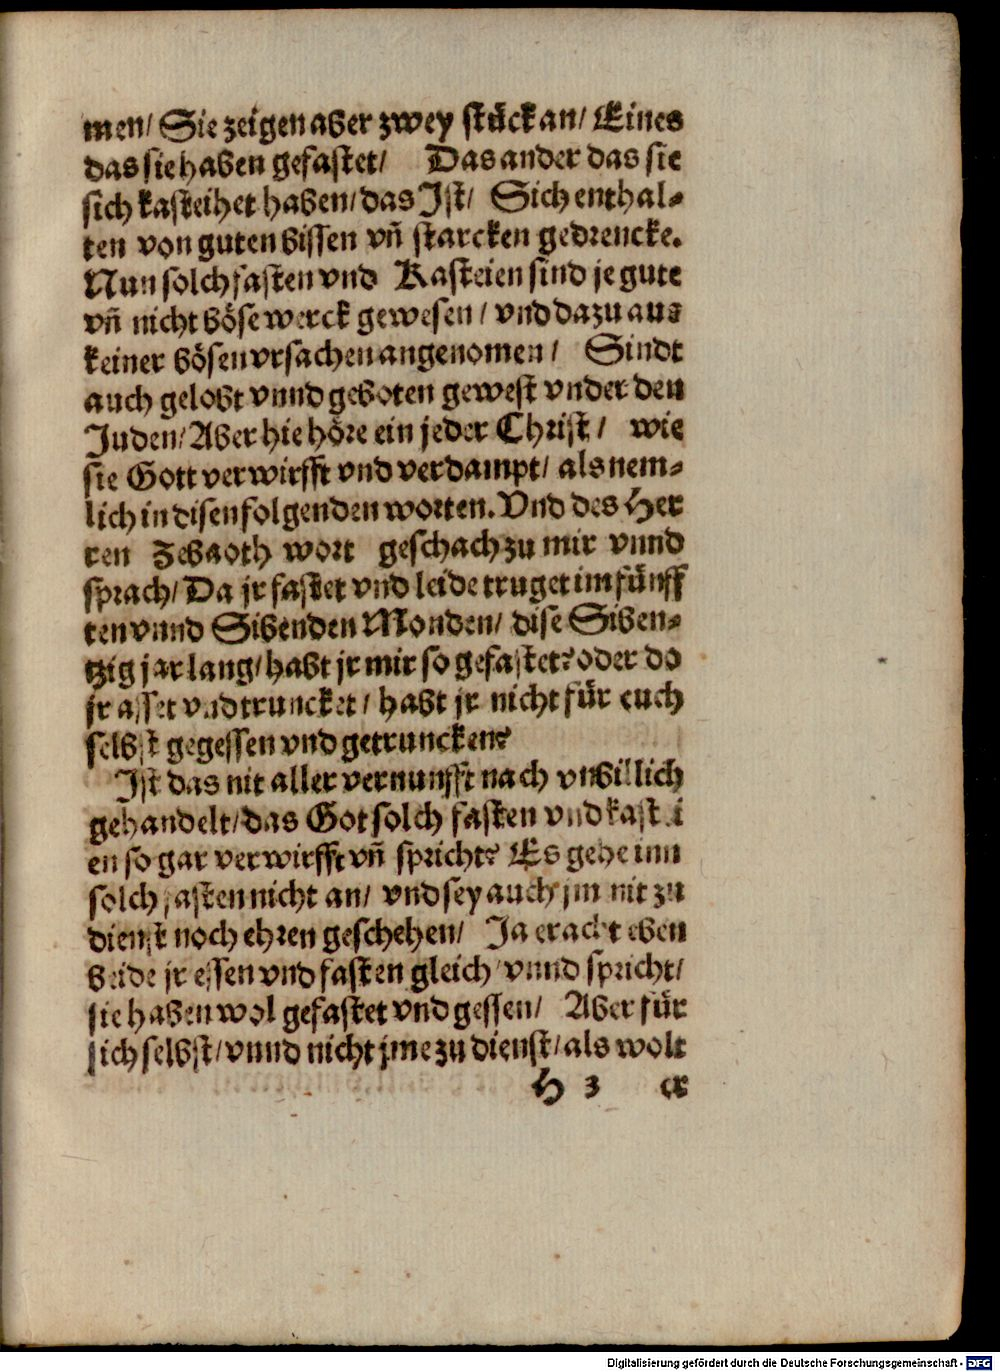 men/ Sie zeigen aber zwey stück an/ Eines
das sie haben gefastet/ Das ander das sie
sich kasteihet haben/ das Jst/ Sich enthal-
ten von guten bissen vñ starcken gedrencke.
Nun solch fasten vnd Kasteien sind je gute
vñ nicht böse werck gewesen/ vnd dazu aus
keiner bösen vrsachen angenomen/ Sindt
auch gelobt vnnd geboten gewest vnder den
Juden/ Aber hie höre ein jeder Christ/ wie
sie Gott verwirfft vnd verdampt/ als nem-
lich in disen folgenden worten. Vnd des Her
ren Zebaoth wort geschach zu mir vnnd
sprach/ Da jr fastet vnd leide truget im fünff
ten vnnd Sibenden Monden/ dise Siben-
tzig jar lang/ habt jr mir so gefastet? oder do
jr asset vnd truncket/ habt jr nicht für euch
selbst gegessen vnd getruncken?
Jst das nit aller vernunfft nach vnbillich
gehandelt/ das Got solch fasten vnd kastei
en so gar verwirfft vñ spricht? Es gehe inn
solch fasten nicht an/ vnd sey auch jm nit zu
dienst noch ehren geschehen/ Ja eracht eben
beide jr essen vnd fasten gleich/ vnnd spricht/
sie haben wol gefastet vnd gessen/ Aber für
sich selbst/ vnnd nicht jme zu dienst/ als wolt
H 3 er
Digitalisierung gefördert durch die Deutsche Forschungsgemeinschaft - DFG